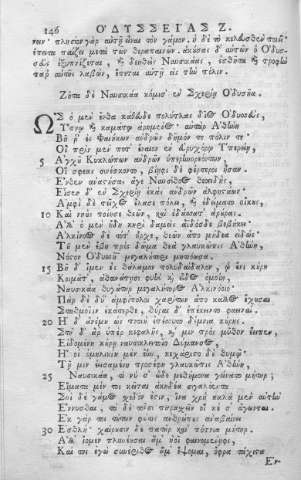 146 ὈΔΥΣΣΕΙΑΣ Ζ.
Ζῆτα δὲ Ναυσικάα κόμισ' ἐν Σχερίῃ Ὀδυσῆα.
ὪΣ ὁ μὲν ἔνθα καθεῦδε πολύτλας δῖος Ὀδυσσεύς,
Ὕπνῳ καὶ καμάτῳ ἀρημένος· αὐτὰρ Ἀθήνη
Βῆ ῥ' ἐς Φαιήκων ἀνδρῶν δῆμόν τε πόλιν τε·
Οἳ πρὶν μέν ποτ' ἔναιον ἐν εὐρυχόρῳ Ὑπερείῃ,
5 Ἀγχοῦ Κυκλώπων ἀνδρῶν ὑπερηνορεόντων
Οἵ σφεας σινέσκοντο, βίηφι δὲ φέρτεροι ἦσαν.
Ἔνθεν ἀναστήσας ἄγε Ναυσίθοος θεοειδής·
Εἷσεν δ' ἐν Σχερίῃ ἑκὰς ἀνδρῶν ἀλφηστάων·
Ἀμφὶ δὲ τεῖχος ἔλασε πόλει, καὶ ἐδείματο οἴκους,
10 Καὶ νηοὺς ποίησε θεῶν, καὶ ἐδάσσατ' ἀρούρας.
Ἀλλ' ὁ μὲν ἤδη κηρὶ δαμεὶς ἄϊδόσδε βεβήκει·
Ἀλκίνοος δὲ τότ' ἦρχε, θεῶν ἄπο μήδεα εἰδώς·
Τοῦ μὲν ἔβη πρὸς δῶμα θεὰ γλαυκῶπις Ἀθήνη,
Νόστον Ὀδυσσῆϊ μεγαλήτορι μητιόωσα.
15 Βῆ δ' ἴμεν ἐς θάλαμον πολυδαίδαλον, ᾧ ἔνι κούρη
Κοιμᾶτ', ἀθανάτῃσι φυὴν καὶ εἶδος ὁμοίη,
Ναυσικάα θυγάτηρ μεγαλήτορος Ἀλκινόοιο·
Πὰρ δὲ δύ' ἀμφίπολοι χαρίτων ἄπο κάλλος ἔχουσαι
Σταθμοῖϊν ἑκάτερθε, θύραι δ' ἐπέκειντο φαειναί.
20 Ἡ δ' ἀνέμου ὡς πνοιὴ ἐπέσσυτο δέμνια κούρης·
Στῆ δ' ἄρ' ὑπὲρ κεφαλῆς, καί μιν πρὸς μῦθον ἔειπεν,
Εἰδομένη κούρῃ ναυσικλειτοῖο Δύμαντος,
Ἥ οἱ ὁμηλικίη μὲν ἔην, κεχάριστο δὲ θυμῷ·
Τῇ μιν ἐεισαμένη προσέφη γλαυκῶπις Ἀθήνη,
25 Ναυσικάα, τί νύ σ' ὧδε μεθήμονα γείνατο μήτηρ;
Εἵματα μέν τοι κεῖται ἀκηδέα σιγαλόεντα·
Σοὶ δὲ γάμος σχεδόν ἐστιν, ἵνα χρὴ καλὰ μὲν αὐτὴν
Ἕννυσθαι, τὰ δὲ τοῖσι παρασχεῖν οἵ κέ σ' ἄγωνται.
Ἐκ γάρ τοι τούτων φάτις ἀνθρώπους ἀναβαίνει
30 Ἐσθλή· χαίρουσιν δὲ πατὴρ καὶ πότνια μήτηρ.
Ἀλλ' ἴομεν πλυνέουσαι ἅμ' ἠοῖ φαινομένηφι,
Καί τοι ἐγὼ συνέριθος ἅμ' ἕψομαι, ὄφρα τάχιστα
Ἐν-